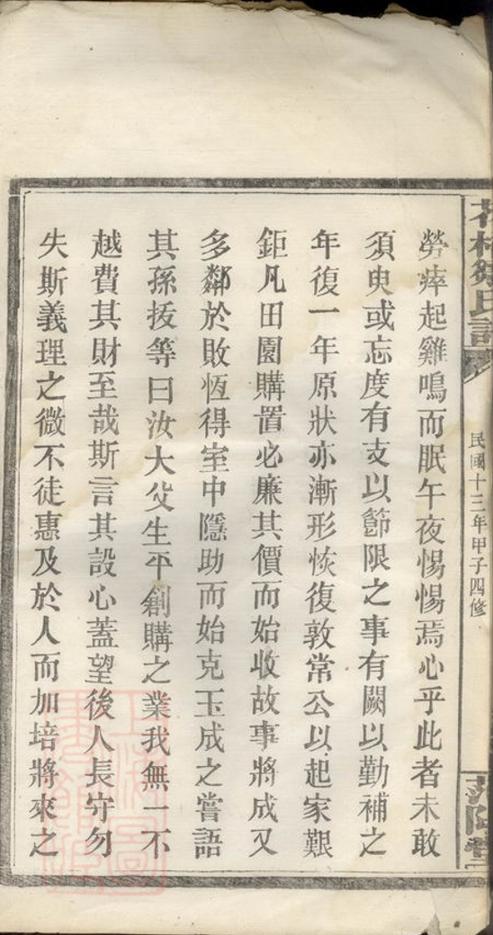 勞瘁起雞鳴而眠午夜惕惕焉心乎此者未敢
須臾或忘度有支以節限之事有闕以勤補之
年復一年原狀亦漸形恢復敦常公以起家艱
鉅凡田園購置必廉其價而始收故事將成又
多鄰於敗恆得室中隱助而始克玉成之嘗語
其孫拔等曰汝大父生平創購之業我無一不
越費其財至哉斯言其設心蓋望後人長守勿
失斯義理之微不徒惠及於人而加培將來之
民國十三年甲子四修